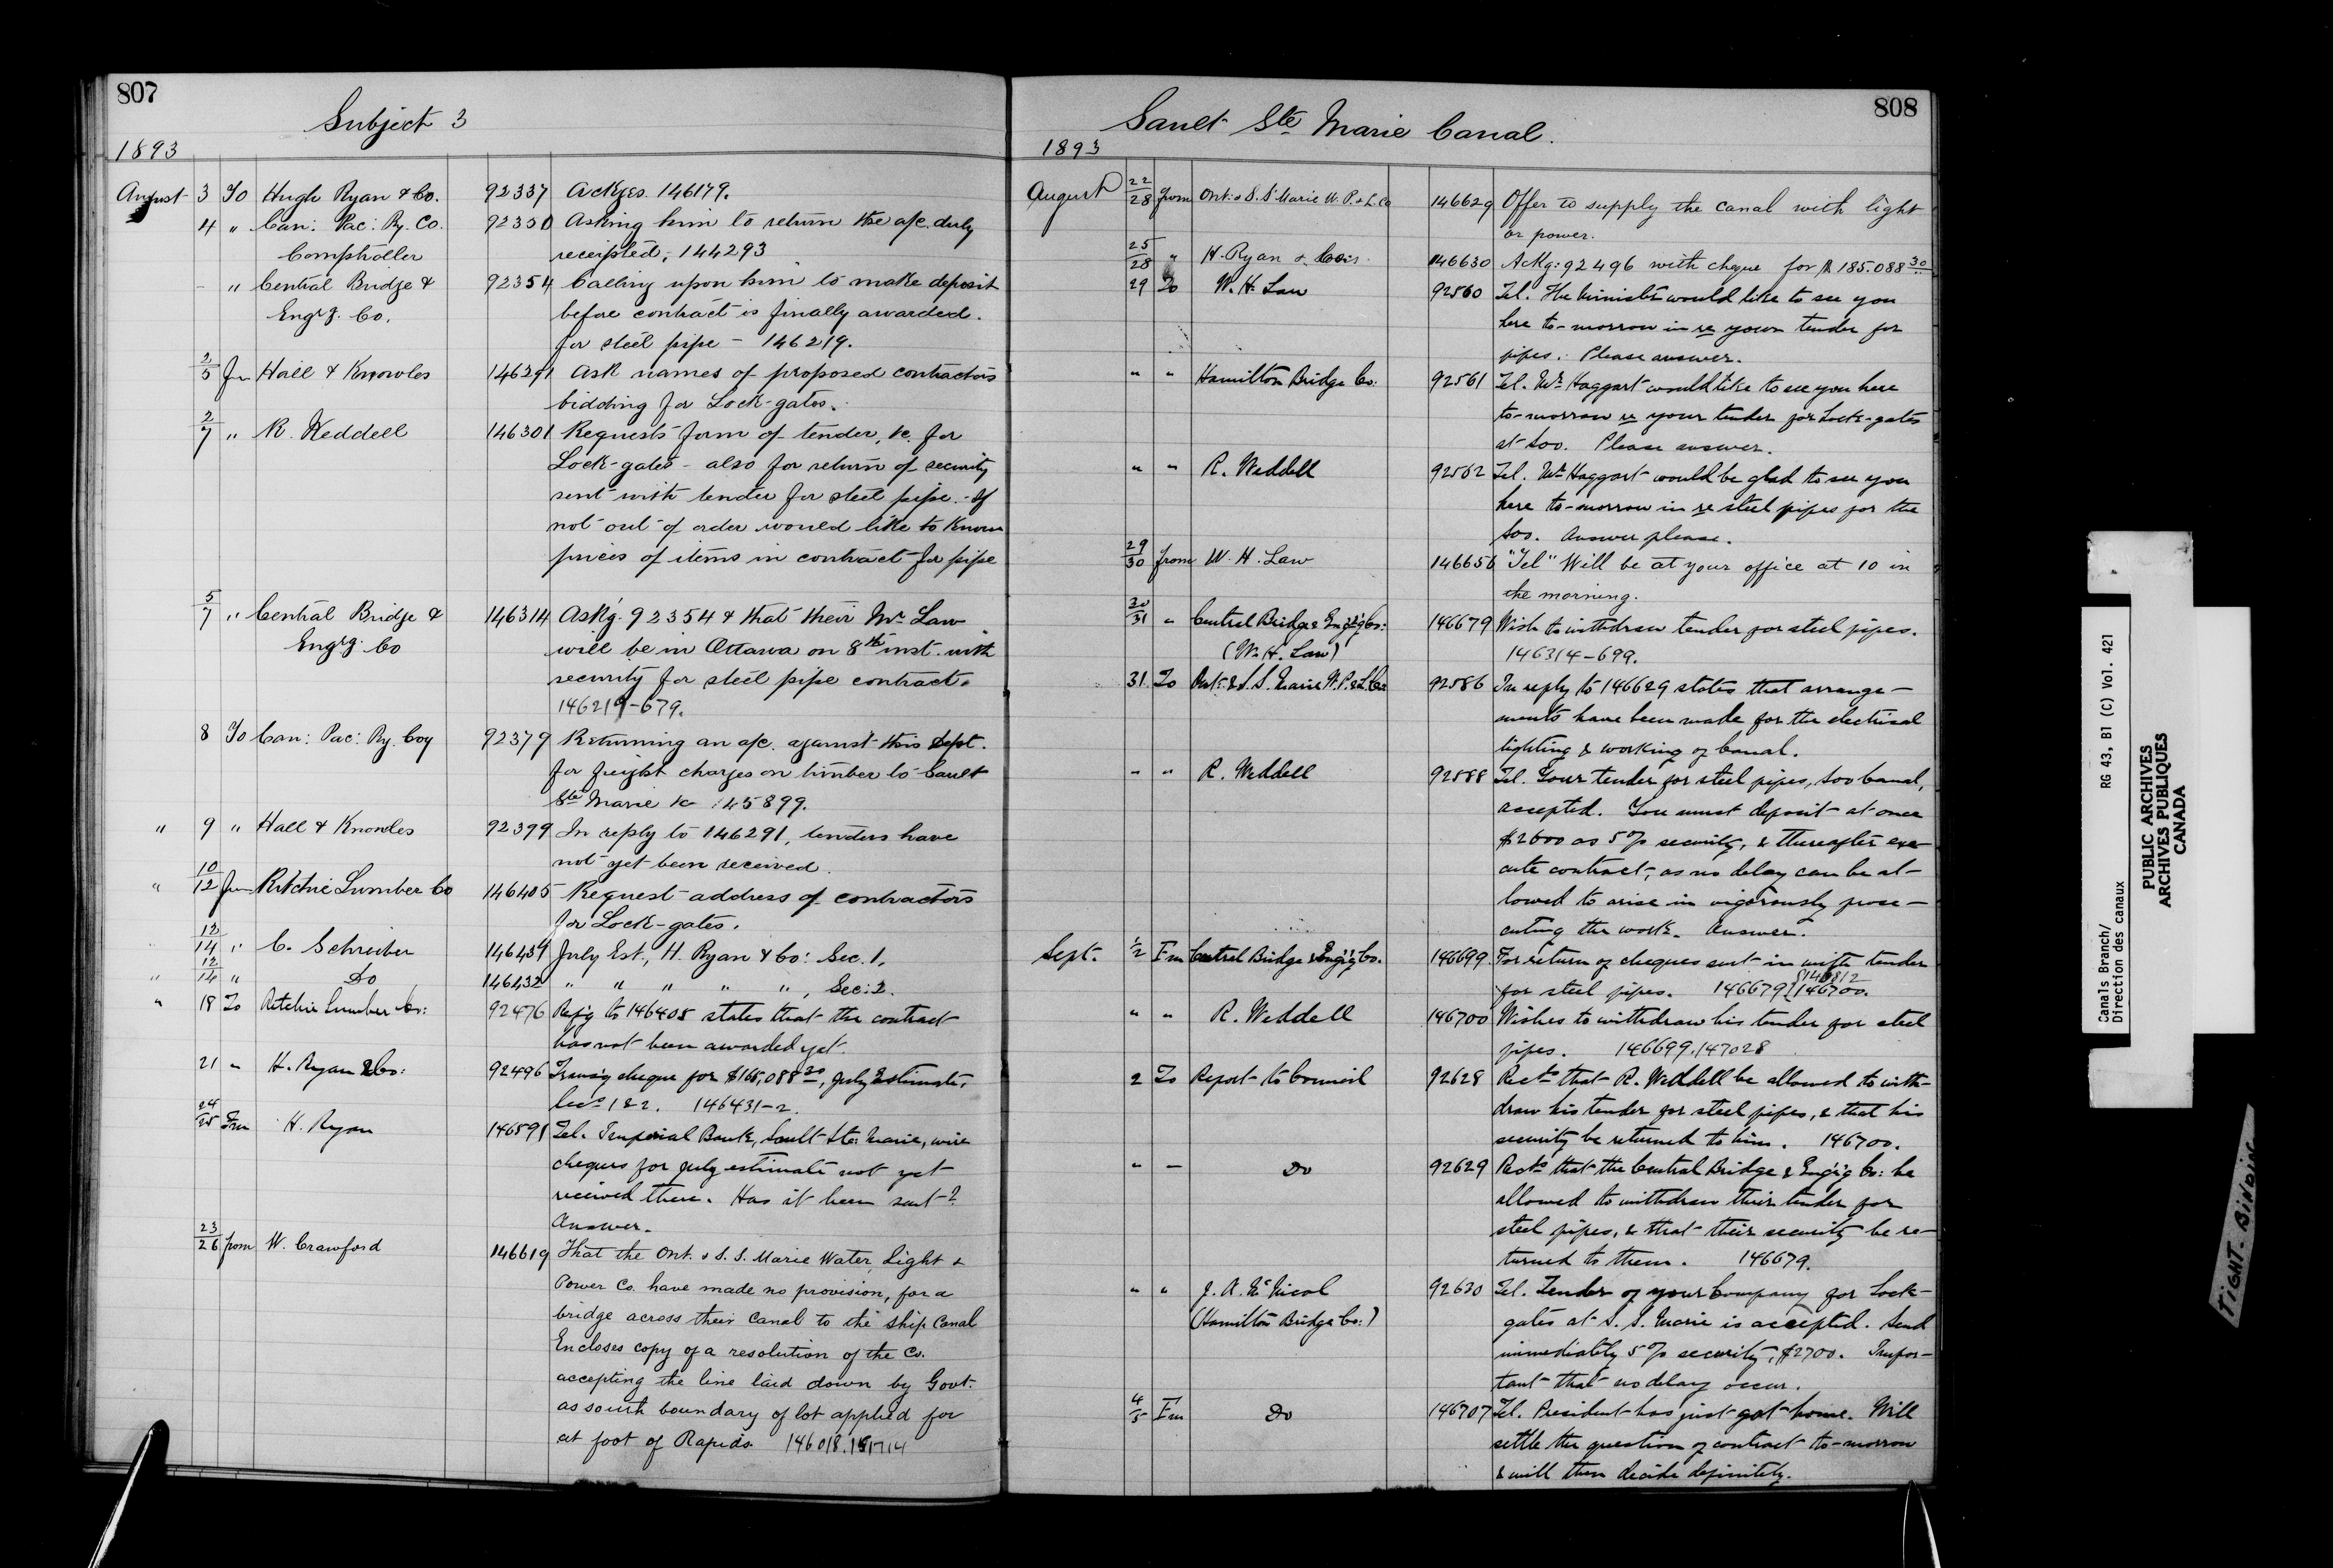 807
Subject 3
1893
August 3 To Hugh Ryan & Co. 92337 Ackges. 146179.
4 " Can: Pac: Ry. Co. 92350 Asking him to return the a/c. duly
Comptroller receipted, 144293
- " Central Bridge & 92354 Calling upon him to make deposit
Engr'g. Co. before contract is finally awarded.
for steel pipe - 146219.
2/5 fm Hall & Knowles 146291 Ask names of proposed contractors
bidding for Lock-gates.
2/7 " R. Weddell 146301 Requests form of tender, &c. for
Lock-gates - also for return of security
sent with tender for steel pipe. - If
not out of order would like to know
prices of items in contract for pipe
5/7 " Central Bridge & 146314 Ackg. 92354 & that their Mr Law
Engr'g. Co will be in Ottawa on 8th inst. with
security for steel pipe contract.
146219-679.
8 To Can: Pac: Ry. Coy 92379 Returning an a/c. against this Dept.
for freight charges on timber to Sault
Ste Marie &c 145899.
" 9 " Hall & Knowles 92399 In reply to 146291, tenders have
not yet been received.
" 10/12 fm Ritchie Lumber Co 146405 Request address of contractors
for Lock-gates.
12/14 " C. Schreiber 146431 July Est., H. Ryan & Co: Sec. 1.
" 12/14 " Do 146432 " " " " ", Sec: 2.
" 18 To Ritchie Lumber Co: 92476 Refg to 146405 states that the contract
has not been awarded yet.
21 " H. Ryan & Co: 92496 Transg cheque for $165,088 30, July Estimate,
Secs 1 & 2. 146431-2.
24/25 Fm H. Ryan 146591 Tel. Imperial Bank, Sault Ste: Marie, wire
cheques for July estimate not yet
received there. Has it been sent?
Answer.
23/26 from W. Crawford 146619 That the Ont. & S. S. Marie Water, Light &
Power Co. have made no provision, for a
bridge across their Canal to the Ship Canal
Encloses copy of a resolution of the Co.
accepting the line laid down by Govt.
as south boundary of lot applied for
at foot of Rapids 146018.
808
Sault Ste Marie Canal.
1893
August 22/28 from Ont. & S. S. Marie W. P. & L. Co 146629 Offer to supply the canal with light
or power.
25/28 " H. Ryan & Co. 146630 Ackg: 92496 with cheque for $185.088 30
29 To W. H. Law 92560 Tel. The Minister would like to see you
here to-morrow in re your tender for
pipes. Please answer.
" " Hamilton Bridge Co: 92561 Tel. Mr Haggart would like to see you here
to-morrow re your tender for Lock-gates
at Soo. Please answer.
" " R. Weddell 92562 Tel. Mr Haggart would be glad to see you
here to-morrow in re steel pipes for the
Soo. Answer please.
29/30 from W. H. Law 146656 "Tel" Will be at your office at 10 in
the morning.
30/31 " Central Bridge & Eng'g Co: 146679 Wish to withdraw tender for steel pipes.
(W. H. Law) 146314-699.
31 To Ont. & S. S. Marie W. P. & L. Co: 92586 In reply to 146629 states that arrange-
ments have been made for the electrical
lighting & working of Canal.
" " R. Weddell 92588 Tel. Your tender for steel pipes, Soo Canal,
accepted. You must deposit at once
$2600 as 5% security, & thereafter exe-
cute contract, as no delay can be al-
lowed to arise in vigorously prose-
cuting the work. Answer.
Sept. 1/2 Fm Central Bridge & Eng'g Co. 146699 For return of cheques sent in with tender
for steel pipes. 146679 146700.
" " R. Weddell 146700 Wishes to withdraw his tender for steel
pipes. 146699.147028
2 To Report to Council 92628 Rects that R. Weddell be allowed to with-
draw his tender for steel pipes, & that his
security be returned to him. 146700.
" - Do 92629 Rects that the Central Bridge & Eng'g Co: be
allowed to withdraw their tender for
steel pipes, & that their security be re-
turned to them. 146679.
" " J. A. McNicol 92630 Tel. Tender of your Company for Lock-
(Hamilton Bridge Co:) gates at S. S. Marie is accepted. Send
immediately 5% security, $2700. Impor-
tant that no delay occur.
4/5 Fm Do 146707 Tel. President has just got home. Will
settle the question of contract to-morrow
& will then decide definitely.
Canals Branch/ RG 43, B1 (C) Vol. 421
Direction des canaux
PUBLIC ARCHIVES
ARCHIVES PUBLIQUES
CANADA
TIGHT BINDING